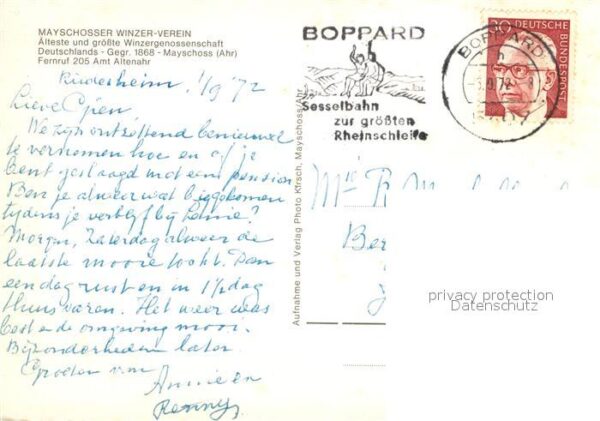 MAYSCHOSSER WINZER-VEREIN
Älteste und größte Winzergenossenschaft
Deutschlands - Gegr. 1868 - Mayschoss (Ahr)
Fernruf 205 Amt Altenahr
Rüdesheim 1/9 72
Lieve
We zijn ontzettend benieuwd
te vernemen hoe en of je
bent geslaagd met een pension
Ben je alweer wat bijgekomen
tijdens je verblijf bij
Morgen, Zaterdag alweer de
laatste mooie tocht. Dan
een dag rust en in 1½ dag
thuis varen. Het weer was
best en de omgeving mooi.
Bijzonderheden later
Groeten van
Annie en
Aufnahme und Verlag Photo Kirsch, Mayschoss/Ahr
BOPPARD
Sesselbahn
zur größten
Rheinschleife
BOPPARD
5407
30 DEUTSCHE
BUNDESPOST
Ber
privacy protection
Datenschutz